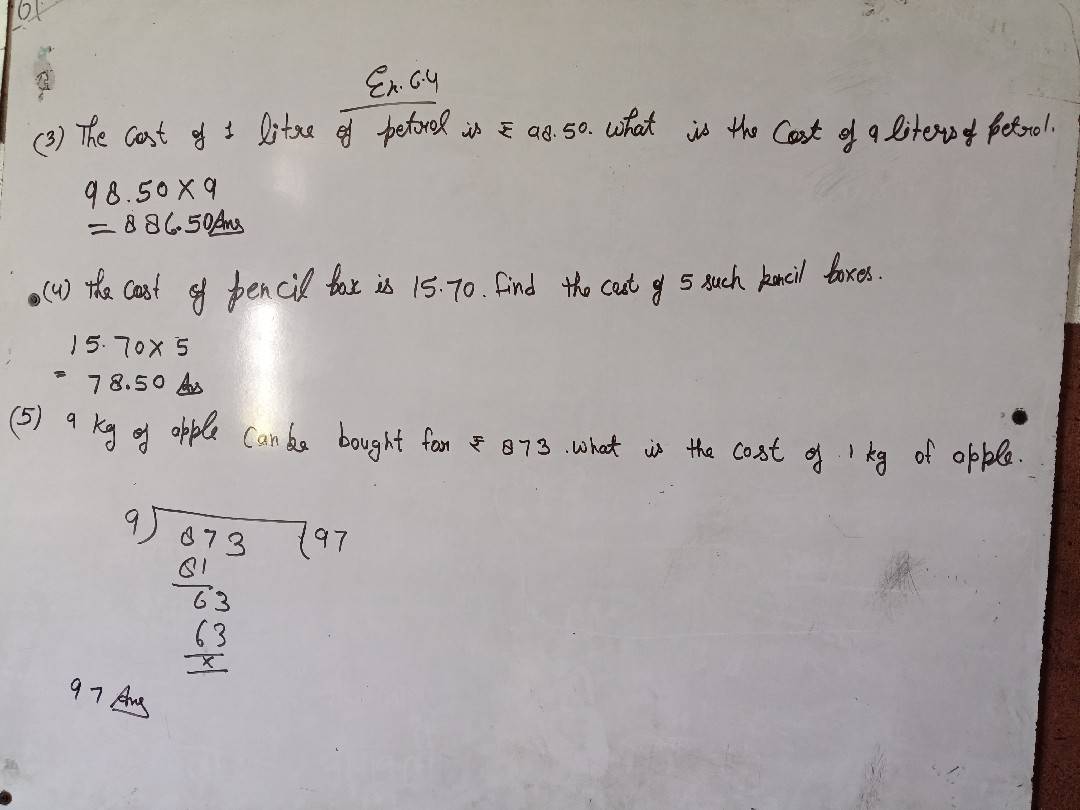 61
Ex. 6.4
(3) The Cost of 1 litre of peturol is ₹ 98.50. what is the Cost of 9 liters of petrol.
98.50 X 9
= 886.50 Ans
(4) the Cost of pencil box is 15.70. find the cost of 5 such pencil boxes.
15.70 X 5
= 78.50 Ans
(5) 9 kg of apple Can be bought for ₹ 873. what is the cost of 1 kg of apple.
9) 873 (97
81
63
63
x
97 Ans